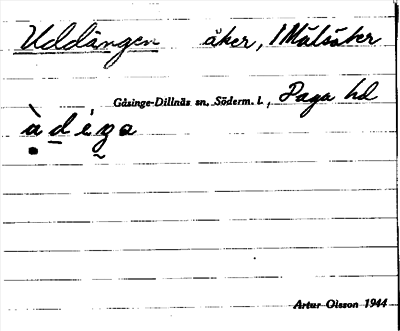 Uddängen åker, i Målsåker
Gåsinge-Dillnäs sn, Söderm. l., Daga hd
Artur Olsson 1944